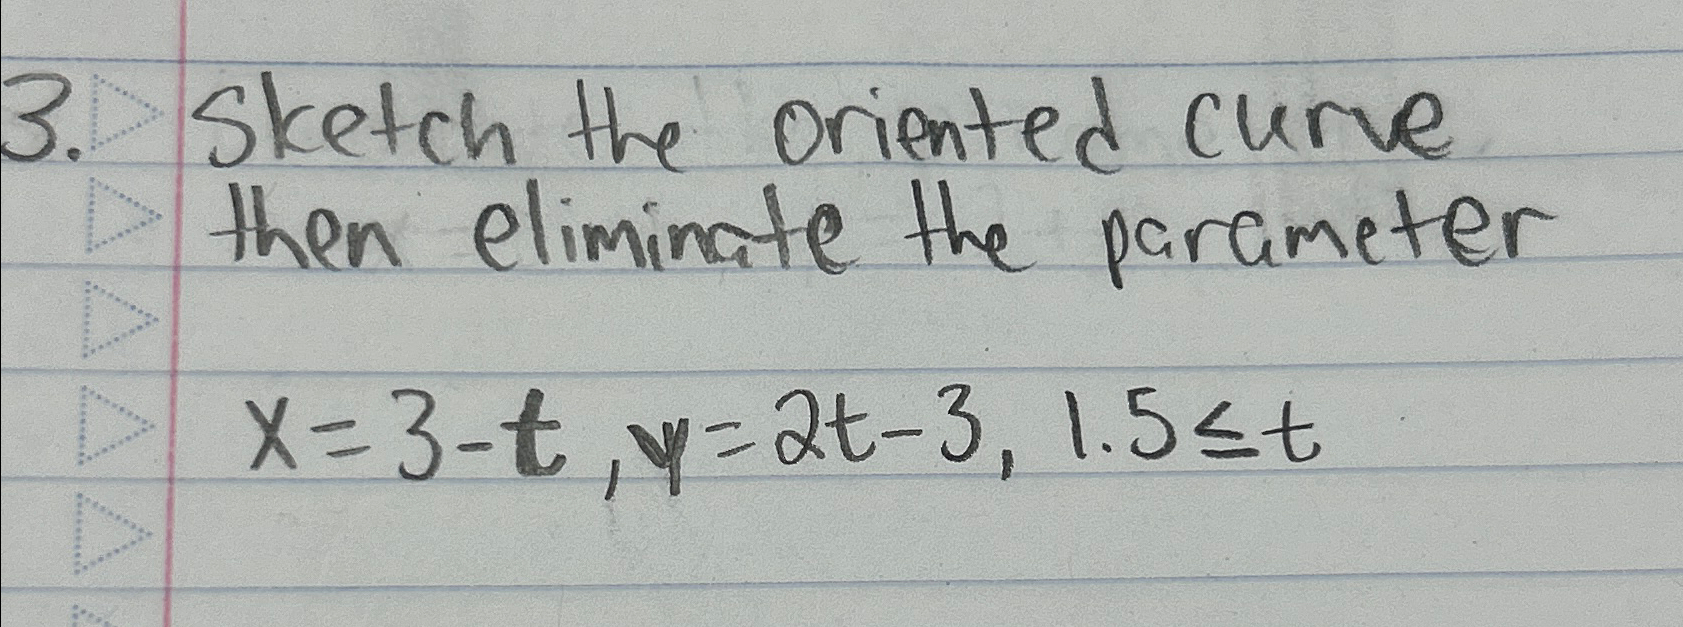 3. Sketch the oriented curve
then eliminate the parameter
x = 3 - t, y = 2t - 3, 1.5 ≤ t